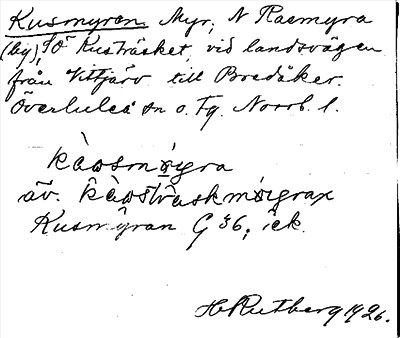 Kusmyran. Myr, N Rasmyra
(by), SÖ Kusträsket, vid landsvägen
från Vittjärv till Bredåker.
Överluleå sn o. Fg. Norrb. l.
kàosmøygra
äv. kàosträskmøigrax
Kusmyran G 36; ick.
H. Rutberg 1926.